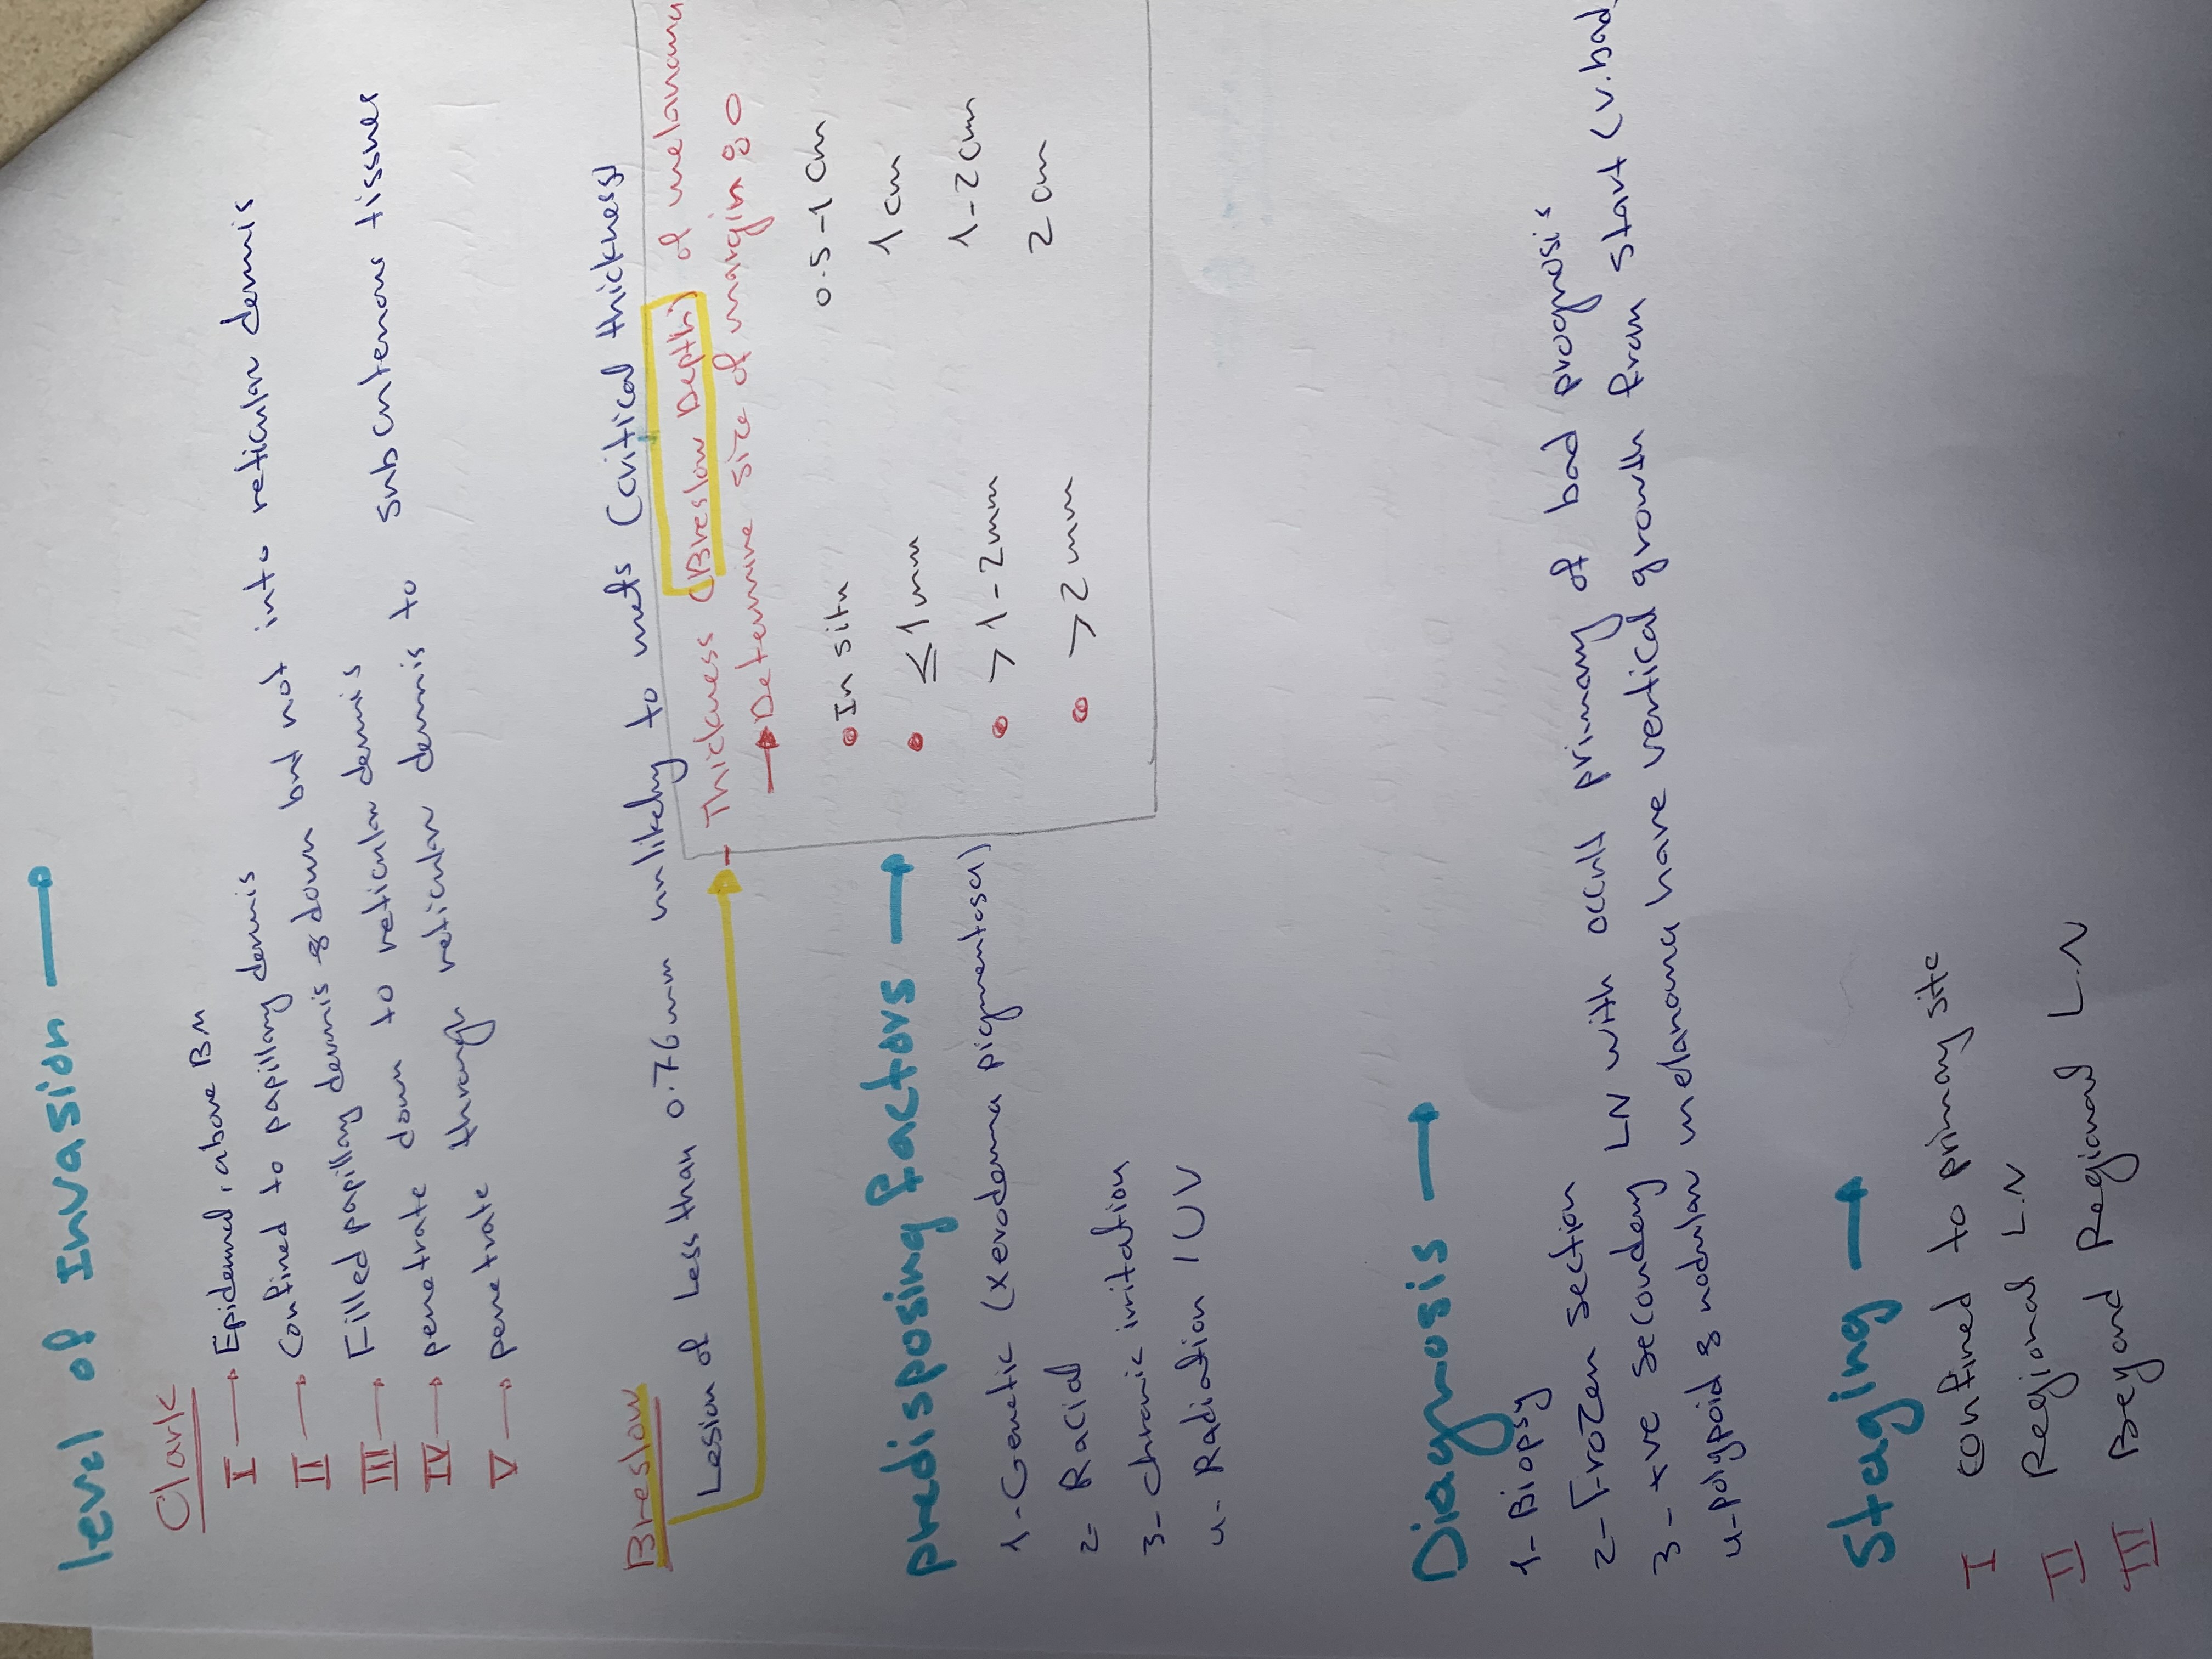 level of Invasion →
Clark
I → Epidermal, above BM
II → Confined to papillary dermis
III → Filled papillary dermis & down but not into reticular dermis
IV → penetrate down to reticular dermis
V → penetrate through reticular dermis to subcutenous tissues
Breslow
Lesion of Less than 0.76mm unlikely to mets (critical thickness)
- Thickness (Breslow Depth) of melanoma
→ Determine size of margin :
• In situ 0.5-1 cm
• ≤1mm 1 cm
• >1-2mm 1-2cm
• >2mm 2 cm
predisposing factors →
1- Genetic (xeroderma pigmentosa)
2- Racial
3- chronic irritation
4- Radiation / UV
Diagnosis →
1- Biopsy
2- Frozen section
3- +ve secondary LN with occult primary of bad prognosis
4- polypoid & nodular melanoma have vertical growth from start (v.bad
Staging →
I Confined to primary site
II Regional L.N
III Beyond Regional L.N